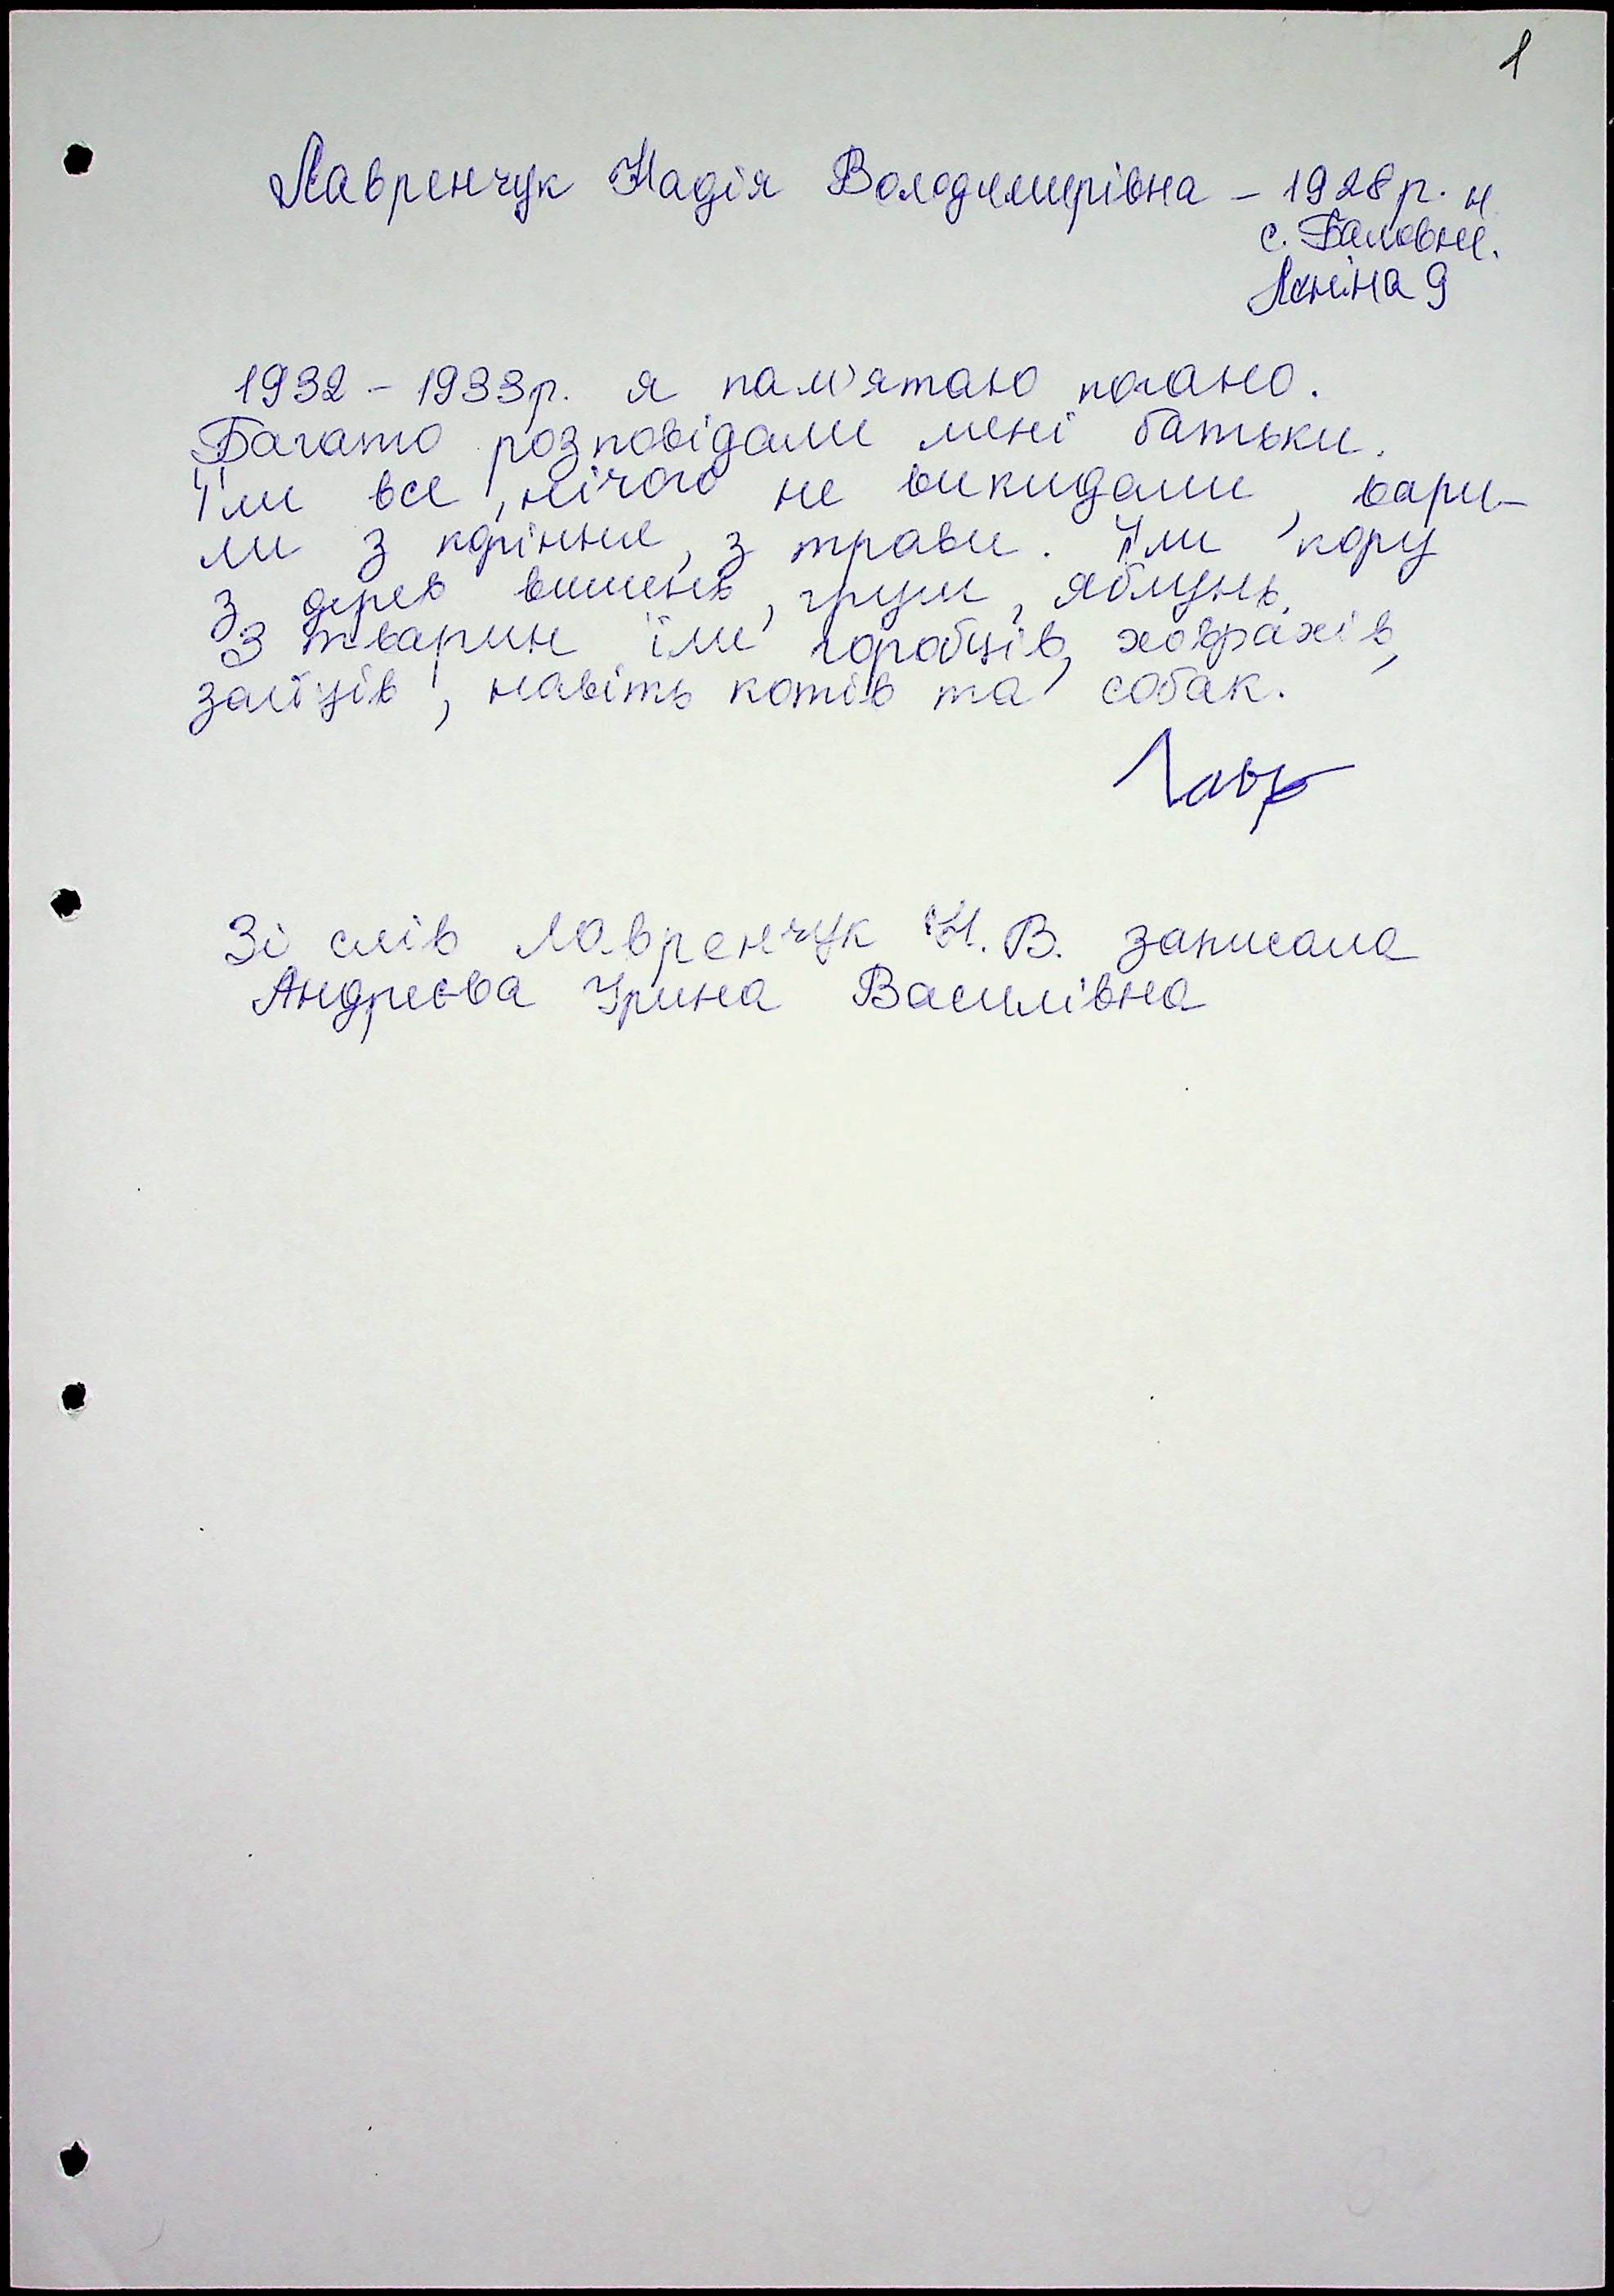 1
Лавренчук Надія Володимирівна – 1928 р. н
с. Баловне.
Леніна 9
1932 – 1933р. я пам'ятаю погано.
Багато розповідали мені батьки.
Їли все, нічого не викидали, вари-
ли з коріння, з трави. Їли кору
з дерев вишень, груш, яблунь.
З тварин їли горобців, ховрахів,
зайців, навіть котів та собак.
Лавр
Зі слів Лавренчук Н. В. записала
Андреєва Ірина Василівна